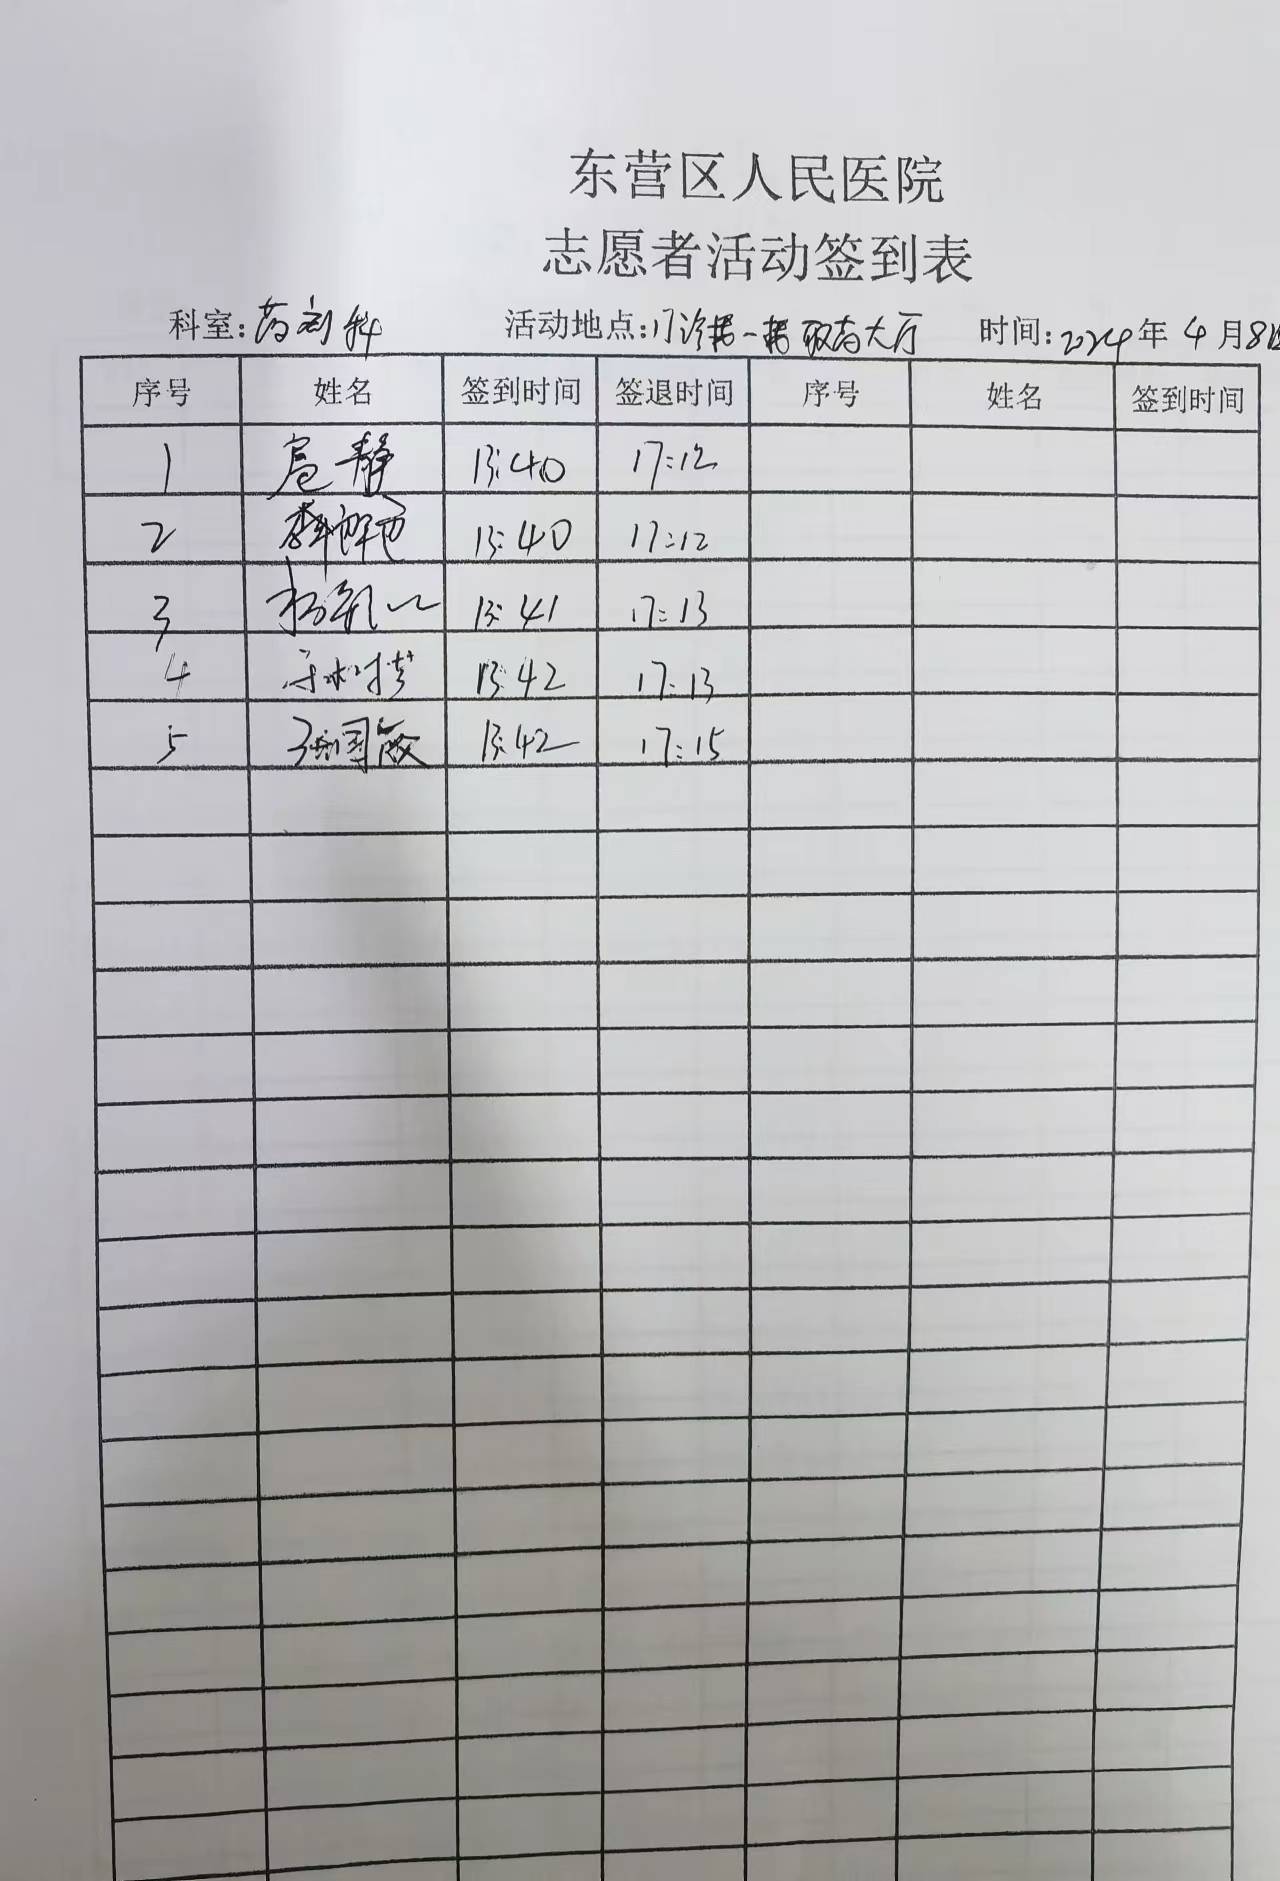 东营区人民医院
志愿者活动签到表
科室:药剂科 活动地点:门诊楼一楼取药大厅 时间:2024年4月8日
序号 姓名 签到时间 签退时间 序号 姓名 签到时间
1 扈静 13:40 17:12
2 13:40 17:12
3 13:41 17:13
4 13:42 17:13
5 13:42 17:15